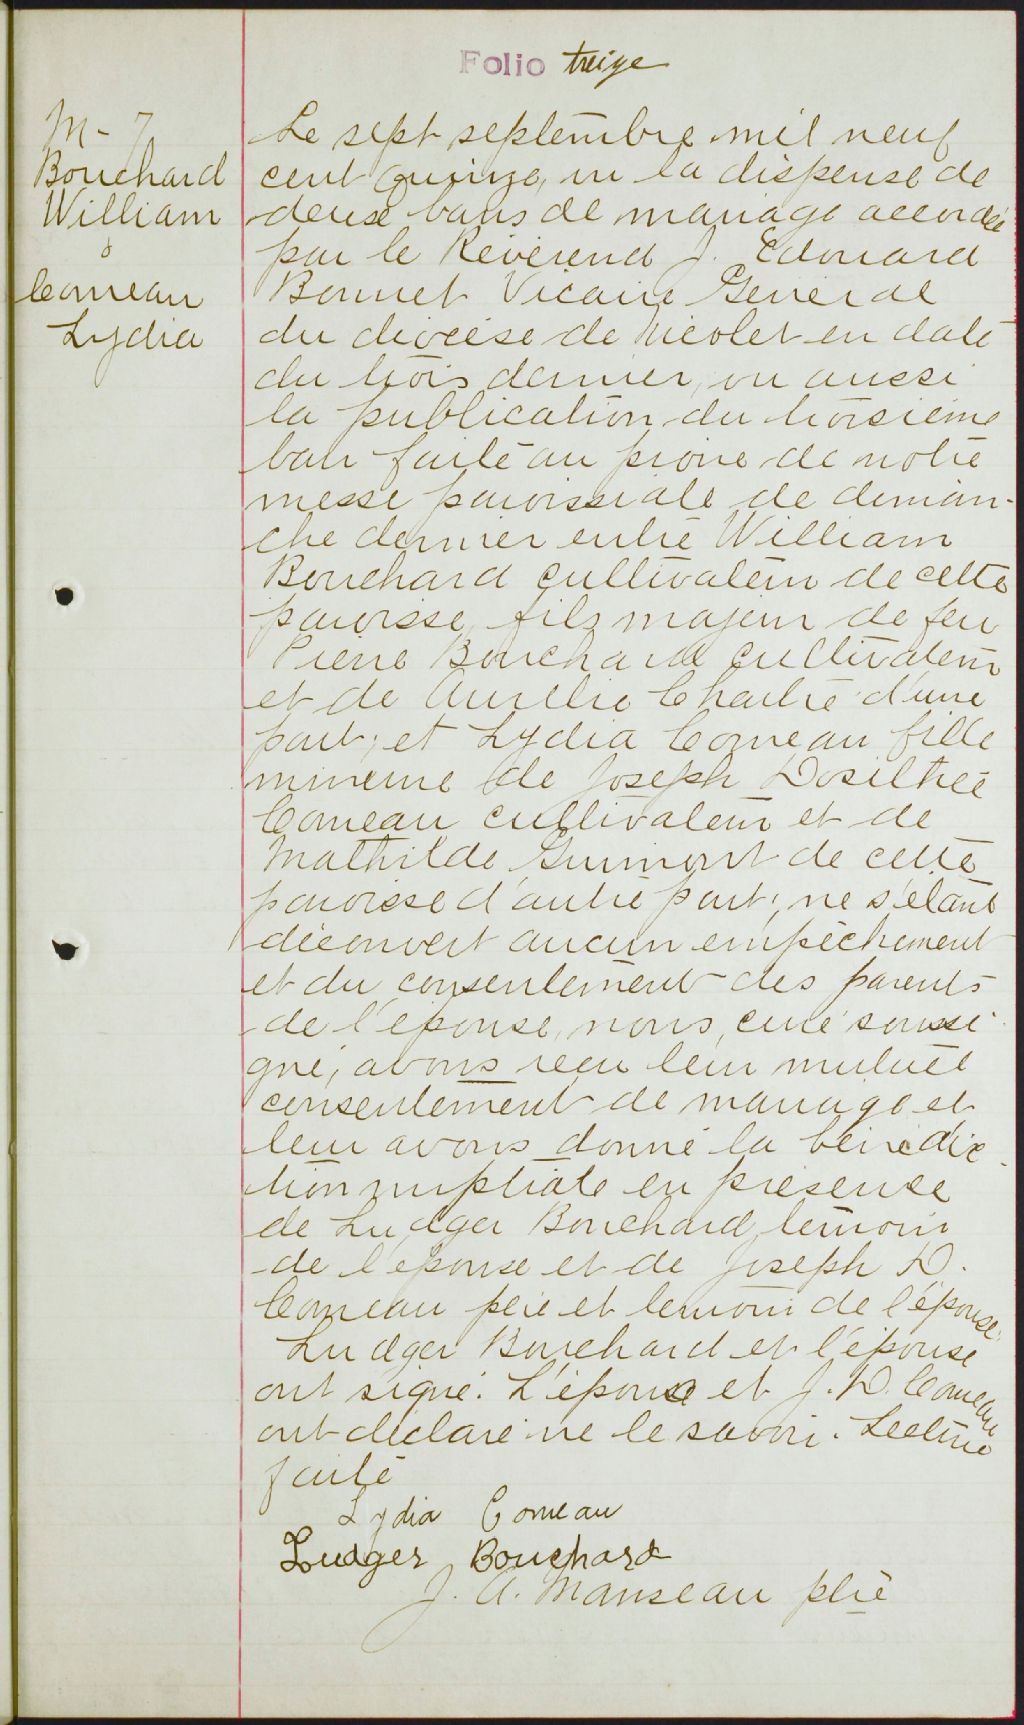 Folio treize
M-7
Bouchard
William
&
Comeau
Lydia
Le sept septembre mil neuf
cent quinze, vu la dispense de
deux bans de mariage accordée
par le Révérend J. Edouard
Bonnet Vicaire Général
du diocèse de Nicolet en date
du trois dernier, vu aussi
la publication du troisième
ban faite au prône de notre
messe paroissiale de diman-
che dernier entre William
Bouchard cultivateur de cette
paroisse, fils majeur de feu
Pierre Bouchard cultivateur
et de Aurélie Chartré d'une
part; et Lydia Comeau fille
mineure de Joseph Dosilthée
Comeau cultivateur et de
Mathilde Guimont de cette
paroisse d'autre part; ne s'étant
découvert aucun empêchement
et du consentement des parents
de l'épouse, nous, curé soussi-
gné, avons reçu leur mutuel
consentement de mariage et
leur avons donné la bénédic-
tion nuptiale en présence
de Ludger Bouchard, témoin
de l'épouse et de Joseph D.
Comeau père et témoin de l'épouse.
Ludger Bouchard et l'épouse
ont signé. L'épouse et J. D. Comeau
ont déclaré ne le savoir. Lecture
faite
Lydia Comeau
Ludger Bouchard
J. A. Manseau ptre